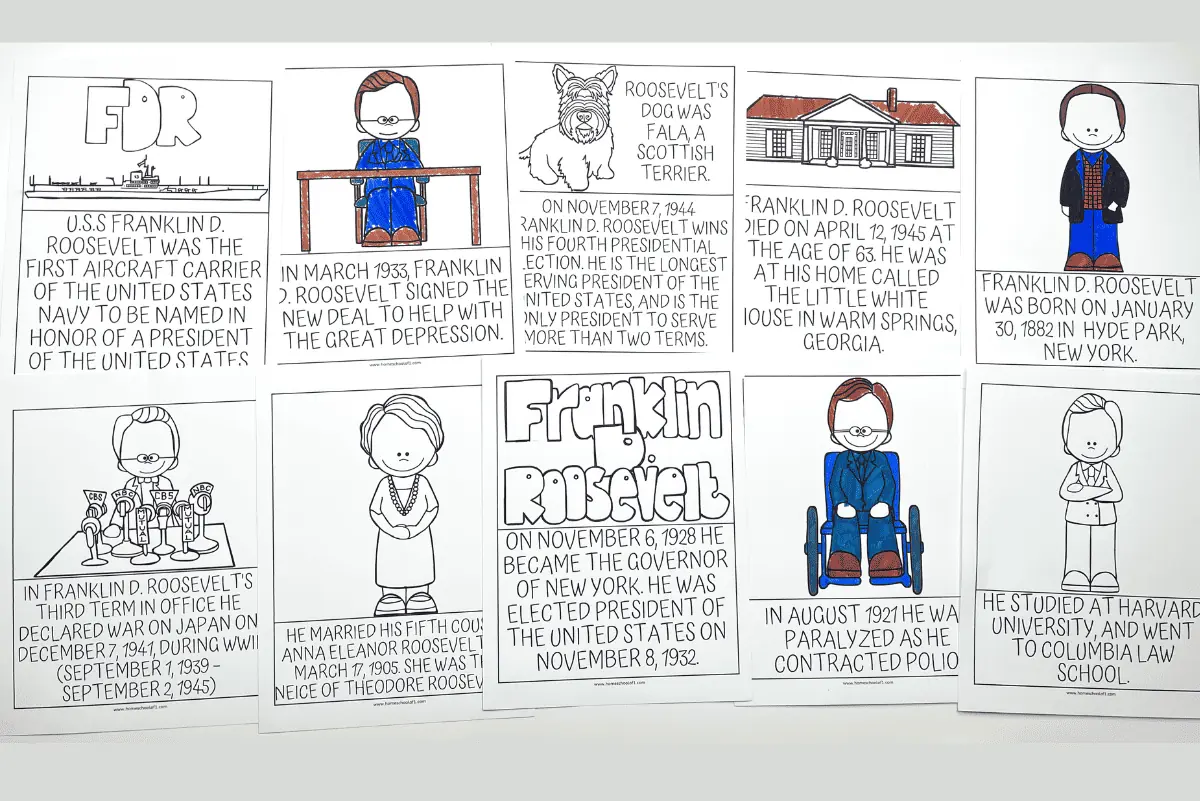 FDR
U.S.S FRANKLIN D.
ROOSEVELT WAS THE
FIRST AIRCRAFT CARRIER
OF THE UNITED STATES
NAVY TO BE NAMED IN
HONOR OF A PRESIDENT
OF THE UNITED STATES
IN MARCH 1933, FRANKLIN
D. ROOSEVELT SIGNED THE
NEW DEAL TO HELP WITH
THE GREAT DEPRESSION.
www.homeschoolof1.com
ROOSEVELT'S
DOG WAS
FALA, A
SCOTTISH
TERRIER.
ON NOVEMBER 7, 1944
RANKLIN D. ROOSEVELT WINS
HIS FOURTH PRESIDENTIAL
LECTION. HE IS THE LONGEST
ERVING PRESIDENT OF THE
NITED STATES, AND IS THE
ONLY PRESIDENT TO SERVE
MORE THAN TWO TERMS.
FRANKLIN D. ROOSEVELT
DIED ON APRIL 12, 1945 AT
THE AGE OF 63. HE WAS
AT HIS HOME CALLED
THE LITTLE WHITE
HOUSE IN WARM SPRINGS,
GEORGIA.
FRANKLIN D. ROOSEVELT
WAS BORN ON JANUARY
30, 1882 IN HYDE PARK,
NEW YORK.
CBS NBC CBS NBC
MUTUAL MUTUAL
IN FRANKLIN D. ROOSEVELT'S
THIRD TERM IN OFFICE HE
DECLARED WAR ON JAPAN ON
DECEMBER 7, 1941, DURING WWII
(SEPTEMBER 1, 1939 –
SEPTEMBER 2, 1945)
www.homeschoolof1.com
HE MARRIED HIS FIFTH COUS
ANNA ELEANOR ROOSEVELT
MARCH 17, 1905. SHE WAS T
NEICE OF THEODORE ROOSEV
www.homeschoolof1.com
Franklin
D.
Roosevelt
ON NOVEMBER 6, 1928 HE
BECAME THE GOVERNOR
OF NEW YORK. HE WAS
ELECTED PRESIDENT OF
THE UNITED STATES ON
NOVEMBER 8, 1932.
www.homeschoolof1.com
IN AUGUST 1921 HE WA
PARALYZED AS HE
CONTRACTED POLIO
www.homeschoolof1.com
HE STUDIED AT HARVARD
UNIVERSITY, AND WENT
TO COLUMBIA LAW
SCHOOL.
www.homeschoolof1.com